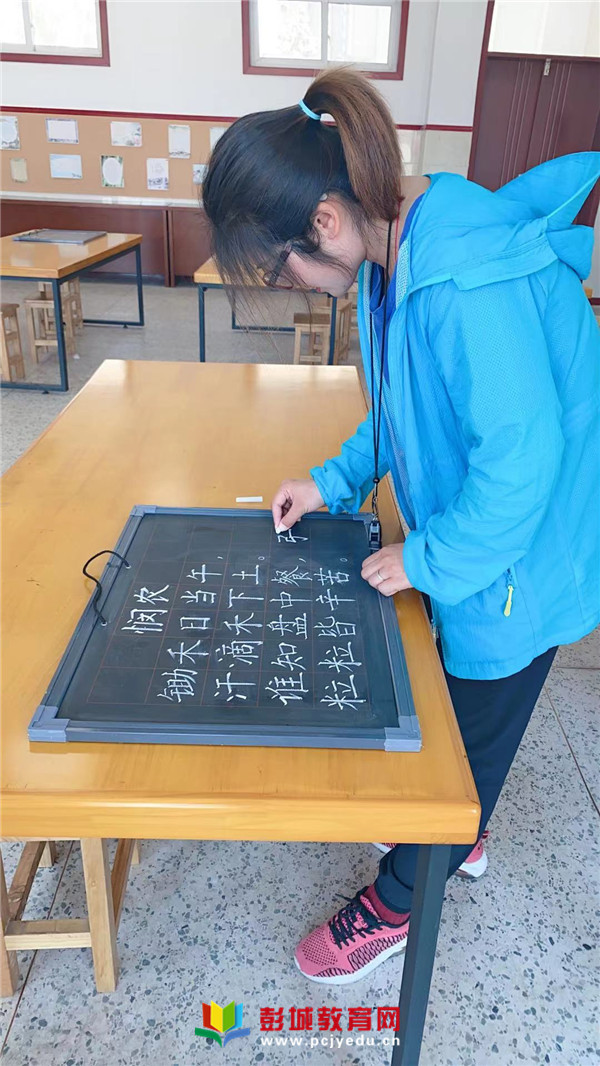 悯农
锄禾日当午，
汗滴禾下土。
谁知盘中餐，
粒粒皆辛苦。
彭城教育网
www.pcjyedu.cn